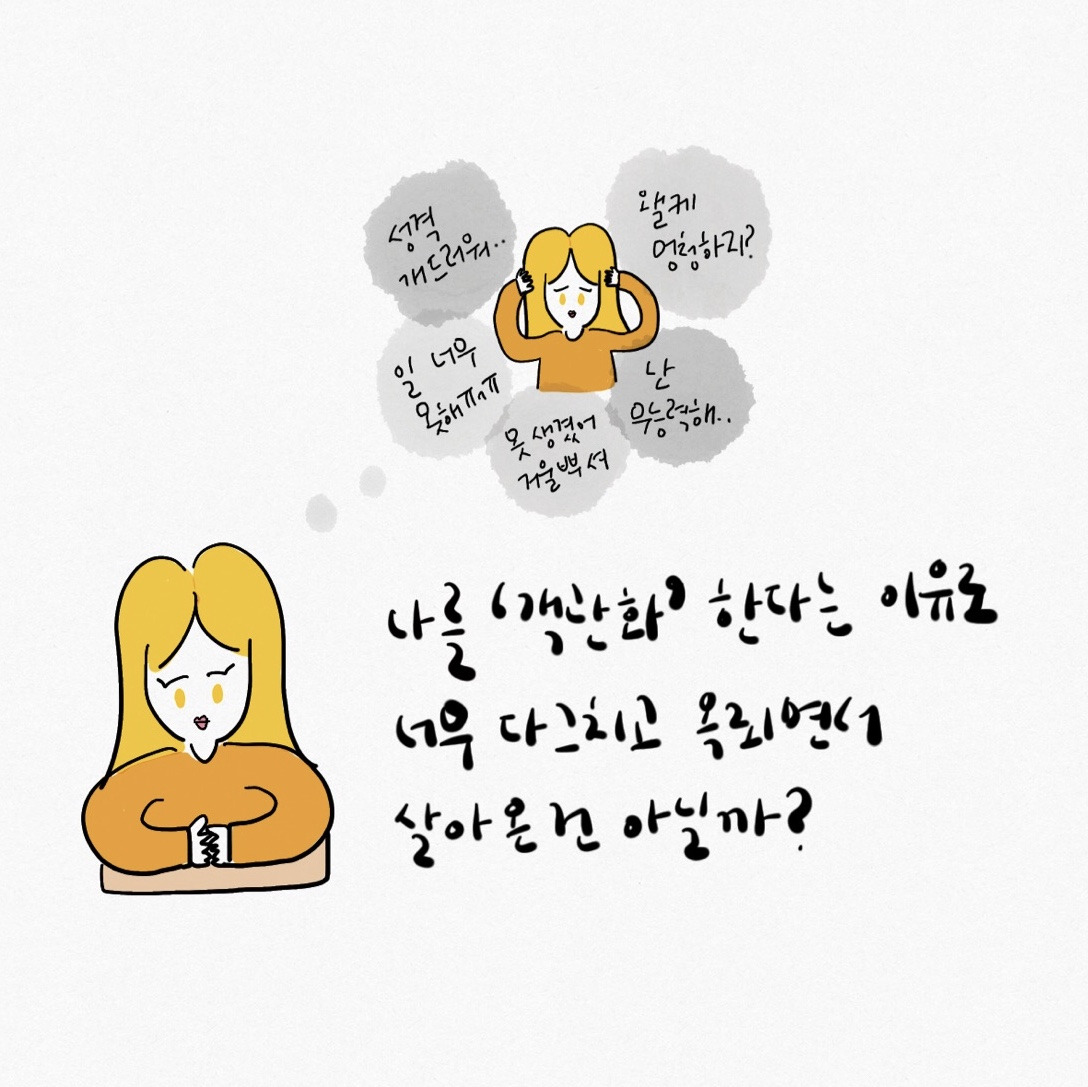 성격
개드러워..
왤케
멍청하지?
일 너무
못해ㅠㅅㅠ
난
무능력해..
못 생겼어
거울뿌셔
나를 '객관화' 한다는 이유로
너무 다그치고 옥죄면서
살아온건 아닐까?